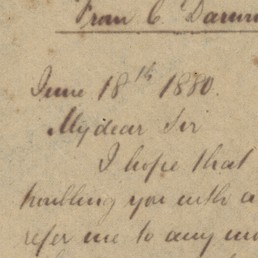 From C. Darwin
June 18th 1880.
My dear Sir
I hope that
troubling you with a
refer me to any